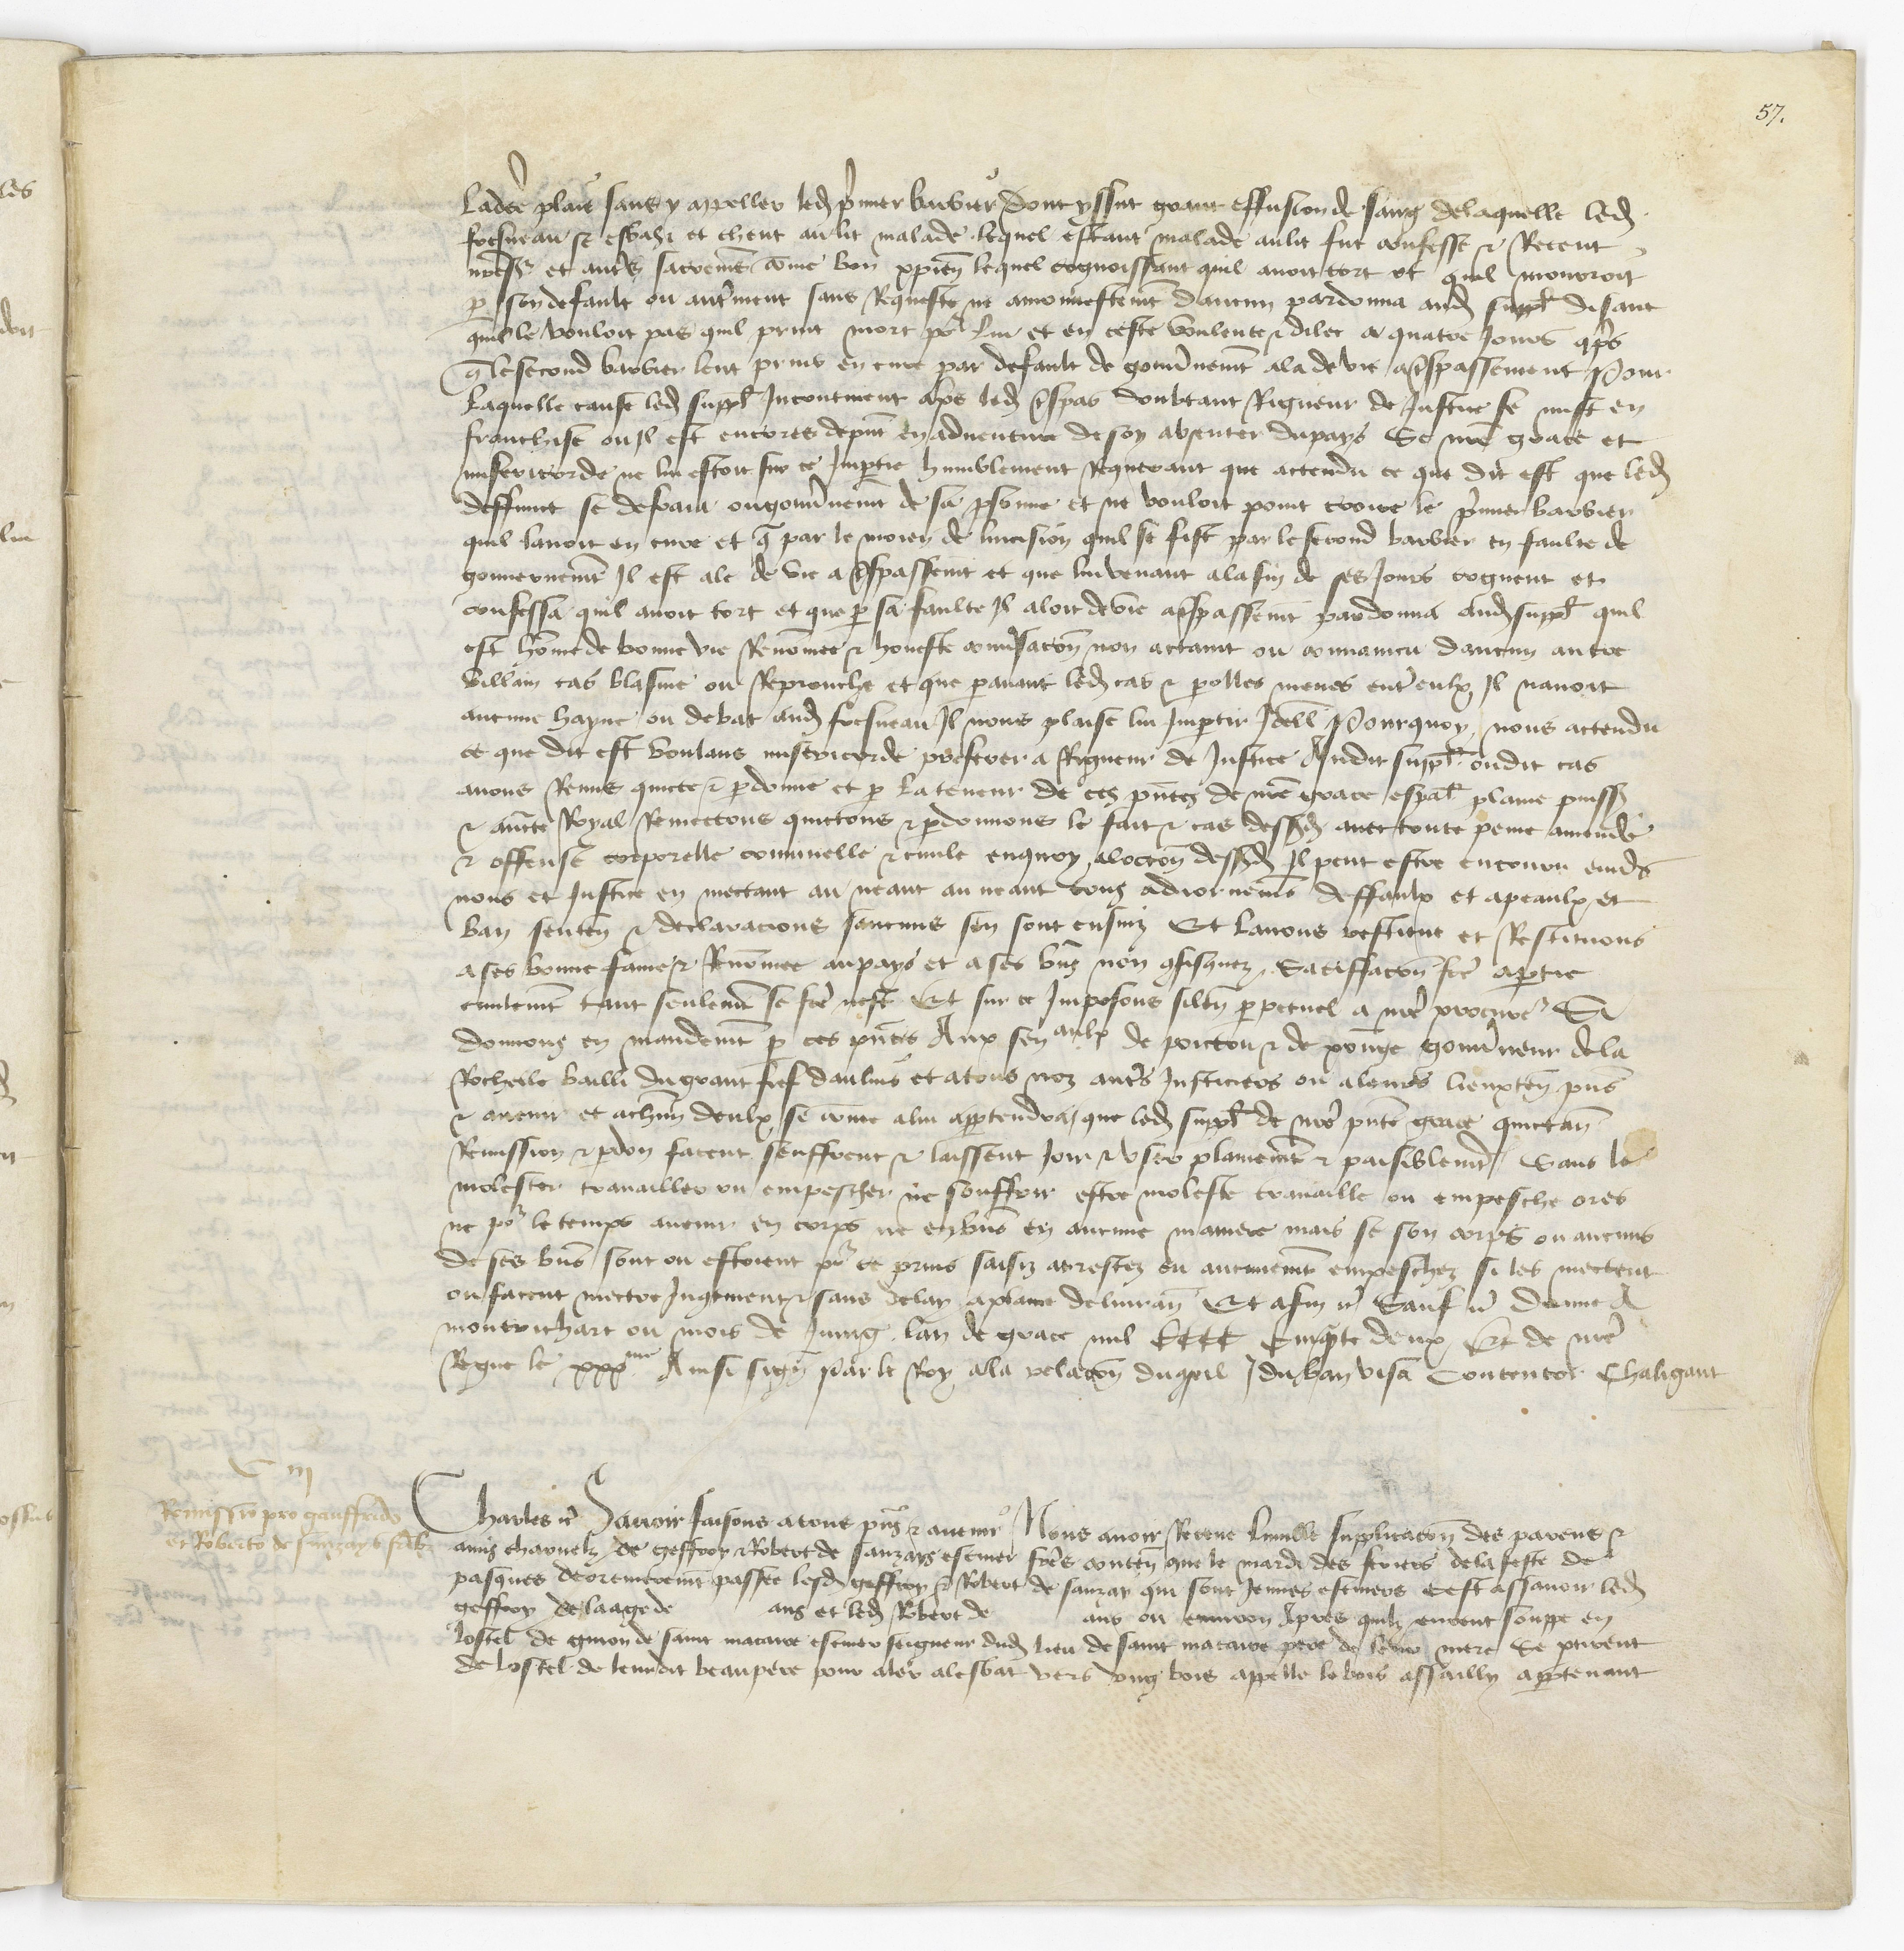 57.
Ladicte plaie sans y appeller led premier barbier Dont yssut grant effusion de sang de laquelle led
foesneau se esbahi et cheut au lit malade lequel estant malade au lit fut confesse & Receut
nreS et autres sacremens comme bon xpien lequel cognoissant quil avoit tort et quil mouroit
par son default ou autrement sans Requeste ne amonnestement daucun pardonna aud suppl disant
quil ne vouloit pas quil print mort pour lui et en ceste voulente & dilec a quatre Jours apres
que le second barbier leut prins en cure par default de gouvernement ala de vie a trespassement Pour
Laquelle cause led suppl Incontinent apres led trespas doubtant Rigueur de Justice se mist en
franchise ou Il est encores depnt en adventure de soy absenter du pays Se nre grace et
misericorde ne lui estoit sur ce Impartie humblement Requerant que actendu ce que dit est que led
deffunct se desvaia ou gouvernement de sa personne et ne vouloit point croire le premier barbier
quil lavoit en cure et que par le moien de lincision quil se fist par le second barbier en faulte de
gouvernement Il est ale de vie a trespassement et que lui venant a la fin de ses Jours cogneut et
confessa quil avoit tort et que par sa faulte Il aloit de vie a trespassement pardonna aud suppl quil
est homme de bonne vie Renommee & honeste conversacion non actaint ou convaincu daucun autre
villain cas blasme ou Reprouche et que paravant led cas & parolles meues entre eulx Il navoit
aucune hayne ou debat aud foesneau Il nous plaise lui Impartir Icelle Pourquoy nous actendu
ce que dit est voulans misericorde preferer a Rigueur de Justice Audit suppl oudit cas
avons Remis quicte & pardonne et par la teneur de ces pntes de nre grace espal plaine puiss
& aucte Royal Remectons quictons & pardonnons le fait & cas dessd avec toute peine amende
& offense corporelle criminelle & civile en quoy a loccasion dessd Il peut estre encouru envers
nous et Justice en mectant au neant au neant tous adiornemens deffaulx et apeaulx et
ban senten & declaracions saucuns sen sont ensuiz Et lavons restitue et Restituons
a ses bonne fame & Renommee au pays et a ses biens non confisquez Satiffacion fce a partie
civilement tant seulement se fce nest Et sur ce Imposons silen perpetuel a nre procureur Si
donnons en mandement par ces pntes Aux senaulx de poictou & de xonge gouverneur de la
Rochelle bailli du grant fief daulnis et a tous noz autres Justiciers ou a leurs lieuxten pns
& avenir et a chun deulx se comme a lui appartendra que led suppl de nre pnte grace quictan
Remission & pardon facent seuffrent & laissent Joir & user plainement & paisiblement Sans le
molester travailler ou empescher ne souffrir estre moleste travaille ou empesche ores
ne pour le temps avenir en corps ne en biens en aucune maniere mais se son corps ou aucuns
de ses biens sont ou estoient pour ce prins saisiz arrestez ou aucunement empeschez si les mectent
ou facent mectre Ingement & sans delay a plaine delivran Et afin etc Sauf etc Donne a
montrichart ou mois de Juing lan de grace mil CCCC Cinqte deux Et de nre
Regne le xxxme Ainsi signe par le Roy a la relacion du conseil J du ban visa Contentor Chaligaut
C III
Remissio pro gauffrido
et Roberto de sanzay frib
Charles etc Savoir faisons a tous pns & avenir Nous avoir Receue lumble supplicacion des parens &
amis charnelz de geffroy & Robert de sanzay escuier freres conten que le mardi des feriers de la feste de
pasques derrenierement passee lesd geffroy & Robert de sanzay qui sont Jeunes escuiers cest assavoir led
geffroy de laage de ans et led Robert de ans ou environ apres quilz eurent souppe en
lostel de guion de saint macaire escuier seigneur dud lieu de saint macaire pere de leur mere Se ptirent
de lostel de leurdit beaupere pour aler alesbat vers ung bois appelle le bois assailly appartenant